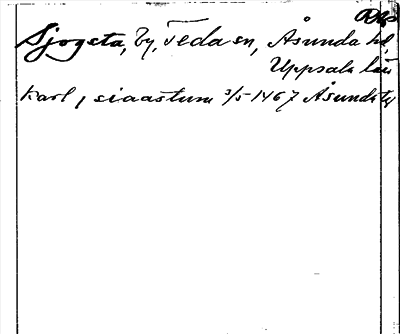 Sjogsta, by, Teda sn, Åsunda hd,
Uppsala län
Karl, siaastum 3/5 1467 Åsunda